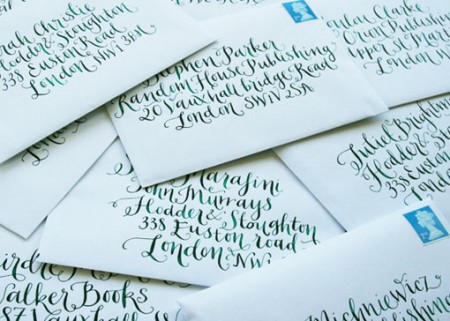 Christie
Hodder & Stoughton
338 Euston Road
London NW1 3BH
Stephen Parker
Random House Publishing
20 Vauxhall bridge Road
London SW1V 2SA
Clarke
Orion Publishing
Upper st
London
Juliet
Hodder &
338 Euston
London
Marafini
John Murrays
Hodder & Stoughton
338 Euston road
London NW1
Walker Books
87 Vauxhall
Michniewicz